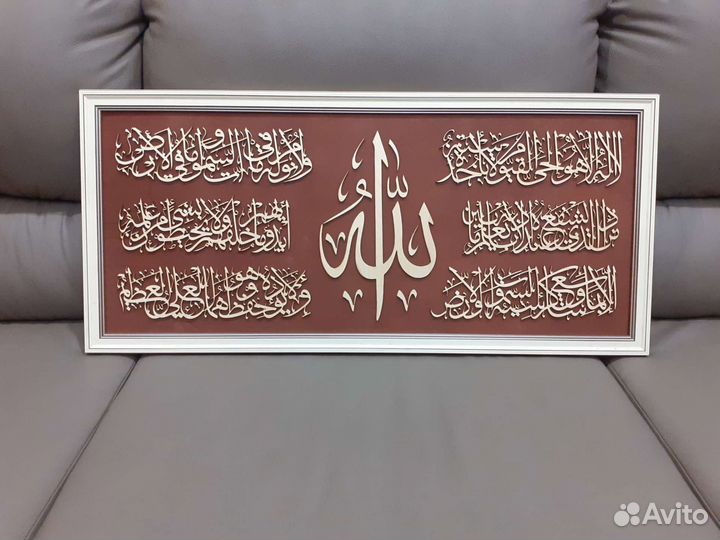 الله
لا إله إلا هو الحي القيوم لا تأخذه سنة
ولا نوم له ما في السموات وما في الأرض
من ذا الذي يشفع عنده إلا بإذنه يعلم ما بين
أيديهم وما خلفهم ولا يحيطون بشيء من علمه
إلا بما شاء وسع كرسيه السموات والأرض
ولا يؤده حفظهما وهو العلي العظيم
Avito